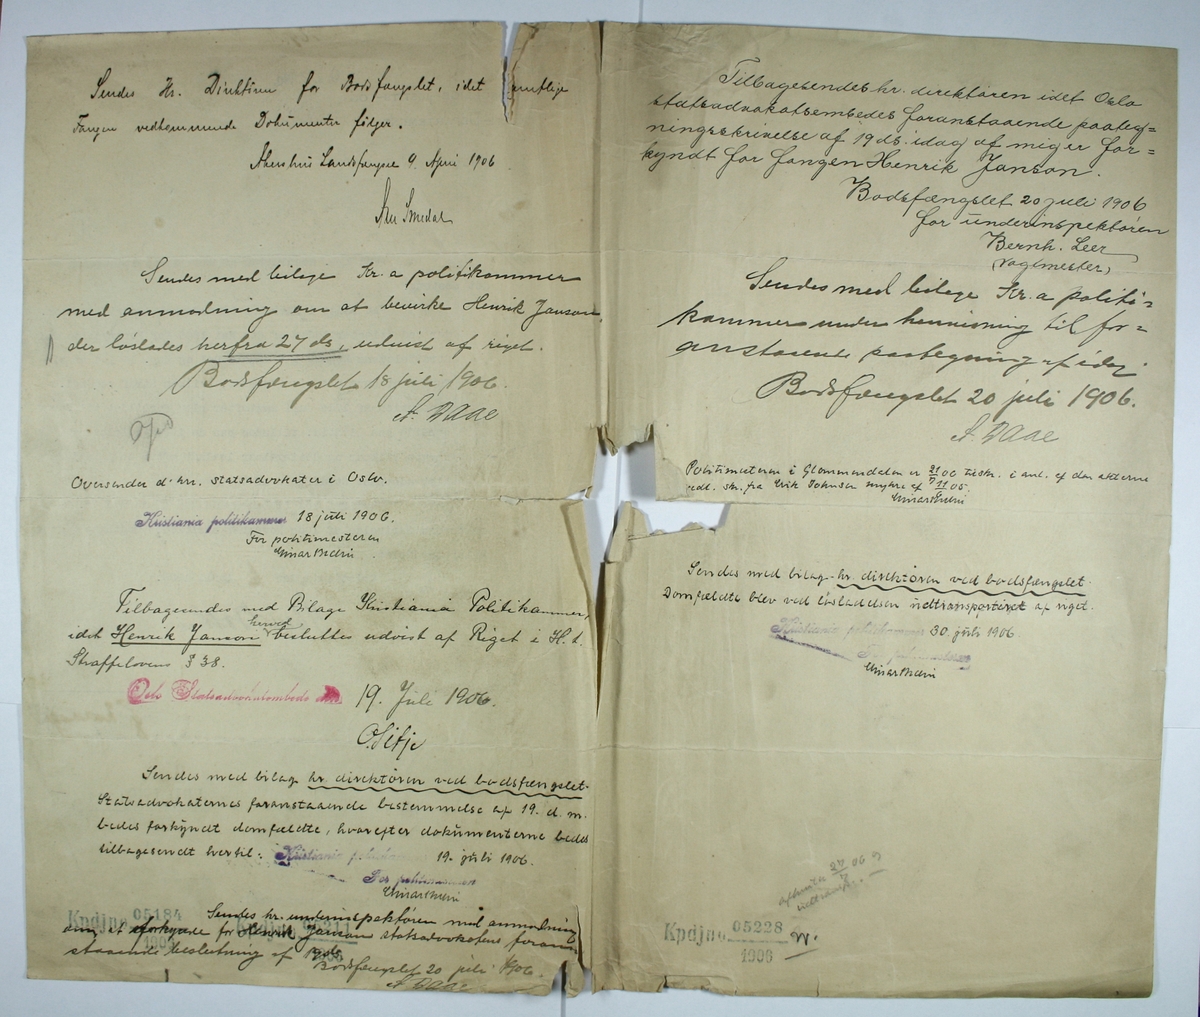 Sendes Hr. Direktøren for Bodsfængslet, idet samtlige
Fangen vedkommende Dokumenter følger.
Akershus Landsfængsel 9 April 1906
Smedal
Sendes med bilage Kr.a politikammer
med anmodning om at bevirke Henrik Janson,
der løslades herfra 27 ds, udvist af riget.
Bodsfængslet 18 juli 1906.
A. Daae
Oversendes d'hrr. statsadvokater i Oslo.
Kristiania politikammer 18 juli 1906.
For politimesteren
Tilbagesendes med Bilage Kristiania Politikammer,
idet Henrik Janson herved besluttes udvist af Riget i H. t.
Straffelovens § 38.
Oslo Statsadvokatembede den 19. Juli 1906.
O. Sitje
Sendes med bilag hr. direktøren ved bodsfængslet.
Statsadvokaternes foranstaaende bestemmelse af 19. d. m.
bedes forkyndt domfældte, hvorefter dokumenterne bedes
tilbagesendt hertil.
Kristiania politikammer 19. juli 1906.
For politimesteren
Kpdjno 05184
Sendes hr. underinspektøren med anmodning
om at forkynde for Henrik Janson statsadvokatens foran=
staaende beslutning af
Bodsfængslet 20 juli 1906.
A. Daae
Tilbagesendes hr. direktøren idet Oslo
statsadvokatsembedes foranstaaende paateg=
ningsskrivelse af 19 ds. idag af mig er for=
kyndt for fangen Henrik Janson.
Bodsfængslet 20 juli 1906
for underinspektøren
Bernh. Leer
(Vagtmester)
Sendes med bilage Kr.a politi=
kammer under henvisning til for=
anstaaende paategning af idag.
Bodsfængslet 20 juli 1906.
A. Daae
Politimesteren i Glommendalen er 21/7 06 tilskr. i anl. af den akterne
vedl. skr. fra Erik Johnsen af 7/11 05.
Sendes med bilag hr. direktøren ved bodsfængslet.
Domfældte blev ved løsladelsen uttransporteret af riget.
Kristiania politikammer 30. juli 1906.
For politimesteren
27/7 06
Kpdjno 05228
1906